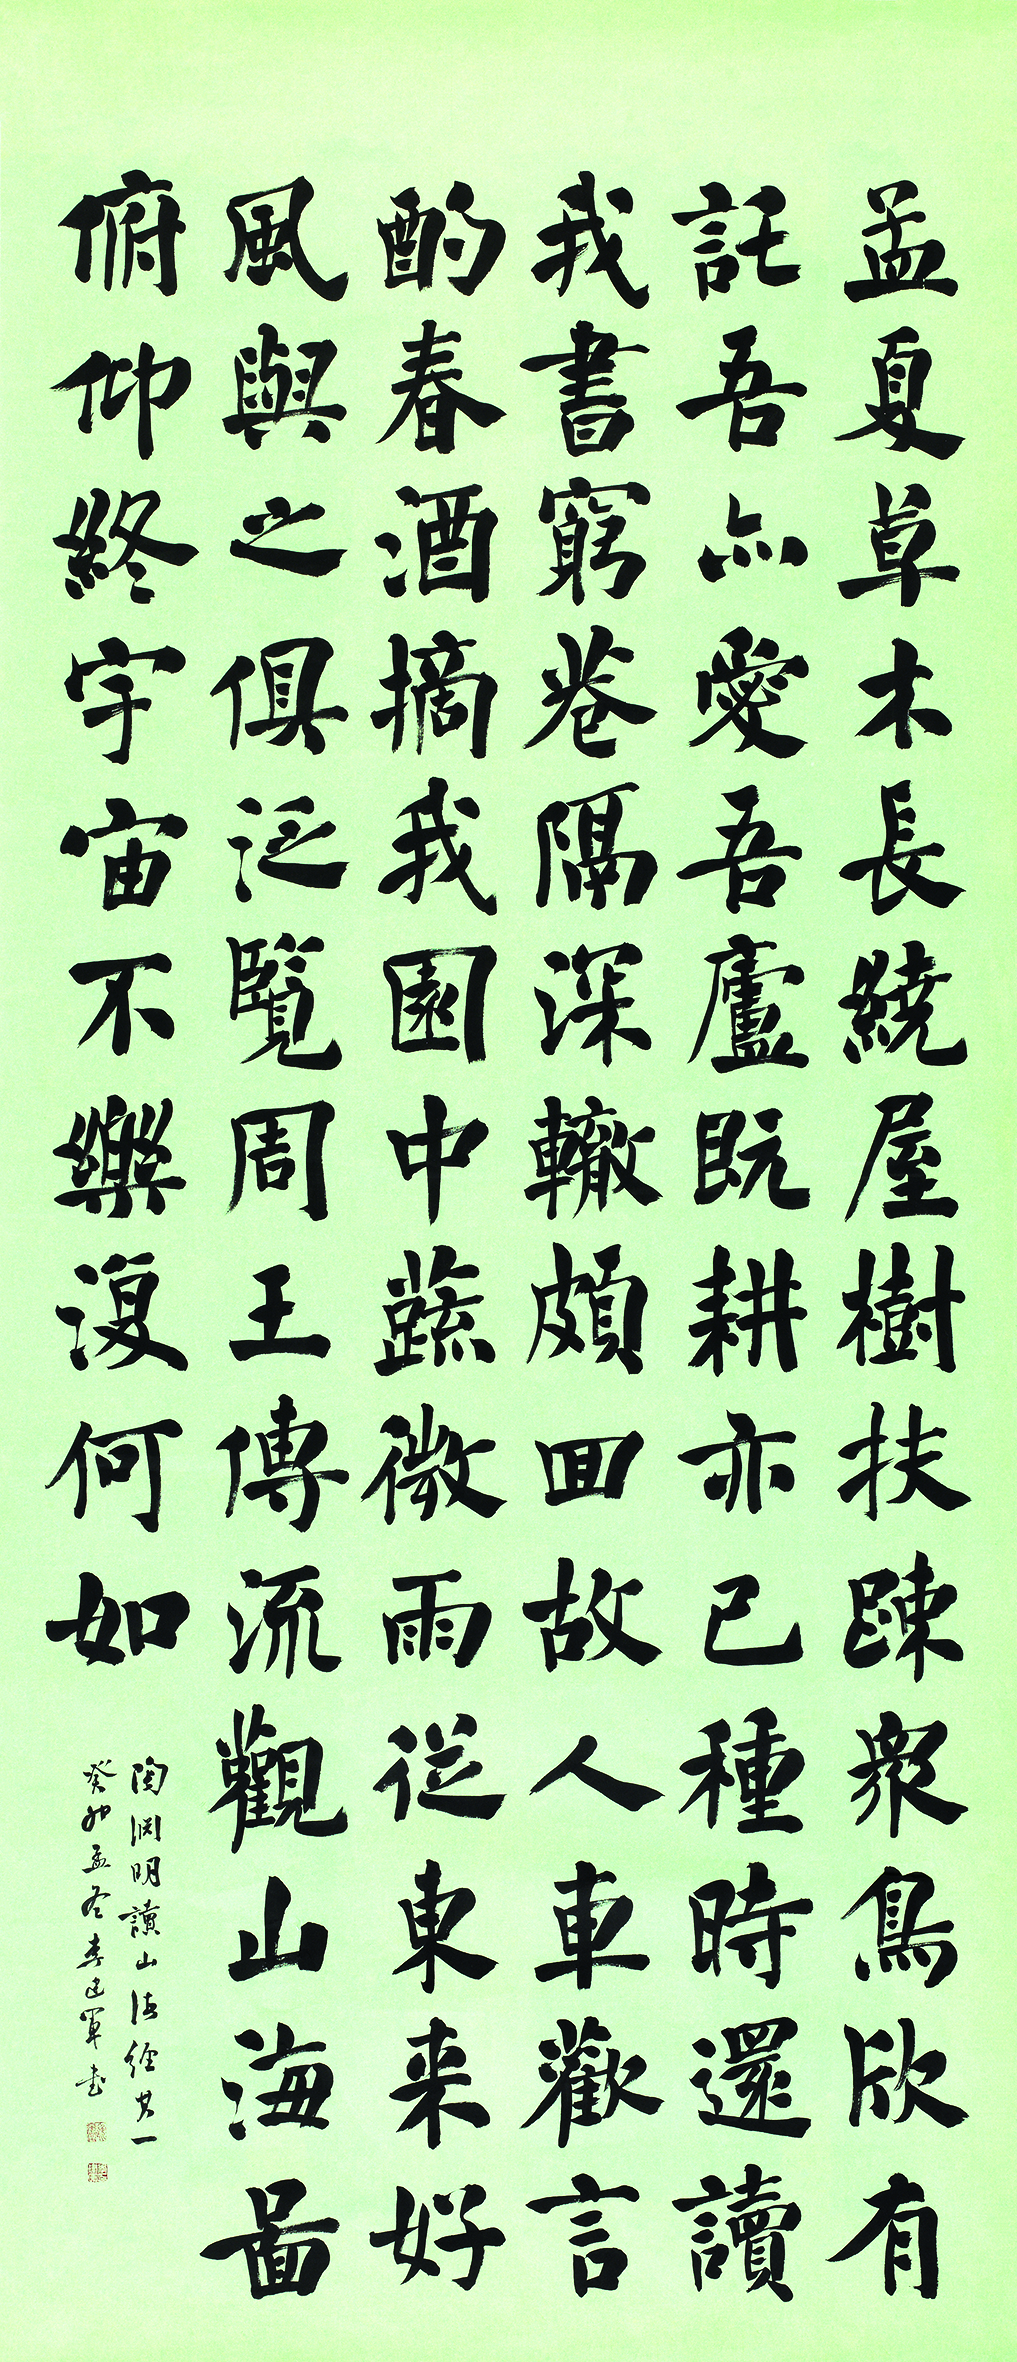 孟夏草木長繞屋樹扶踈衆鳥欣有
託吾亦愛吾廬既耕亦已種時還讀
我書窮巷隔深轍頗回故人車歡言
酌春酒摘我園中蔬微雨從東来好
風與之俱泛覽周王傳流觀山海圖
俯仰終宇宙不樂復何如
陶淵明讀山海經其一
癸卯孟冬李軍書